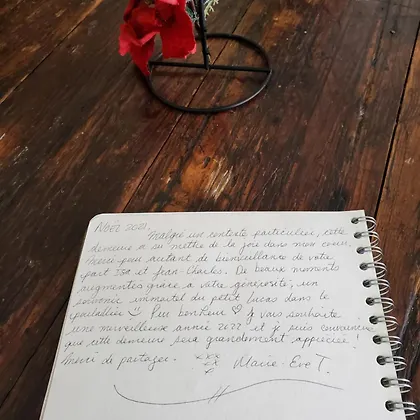 Noël 2021.
Malgré un contexte particulier, cette
demeure a su mettre de la joie dans mon coeur.
Merci pour autant de bienveillance de votre
part Isa et Jean-Charles. De beaux moments
augmentés grâce à votre générosité; un
souvenir immortel du petit Lucas dans le
poulailler. Pur bonheur ♡ J vous souhaite
une merveilleuse année 2022 et je suis convaincue
que cette demeure sera grandement appréciée!
Merci de partager. xxx Marie-Eve T.